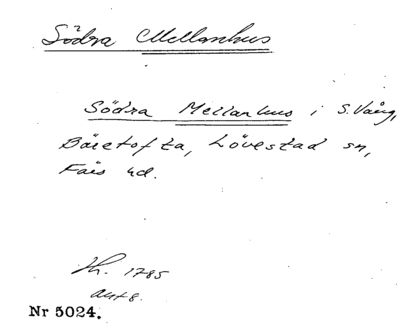 Södra Mellanhus
Södra Mellanhus i S. Vång,
Bäretofta, Lövestad sn,
Färs hd.
Lh. 1785
akt 8.
Nr 5024.